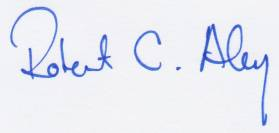 Robert C. Aley